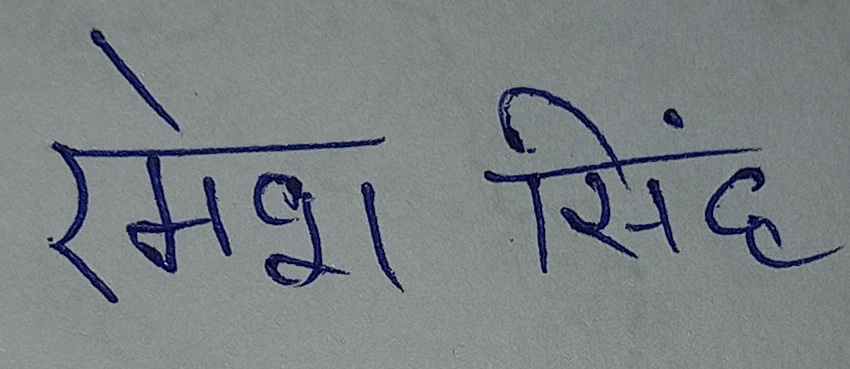 रमेश सिंह